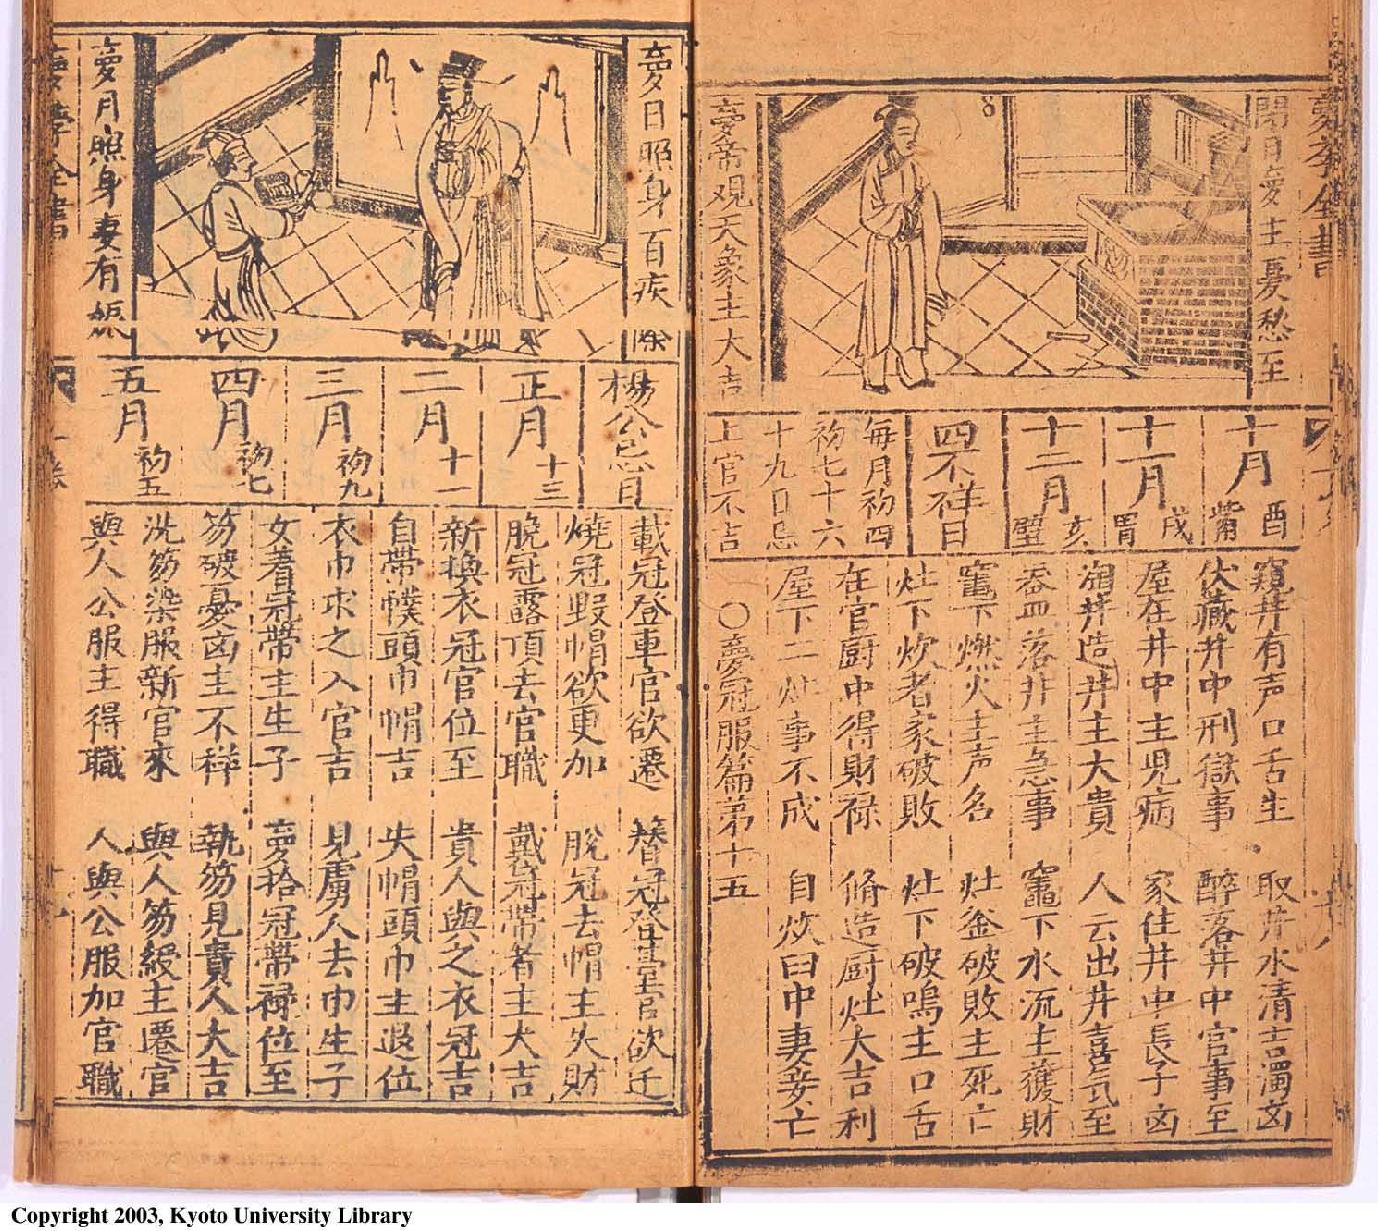 夣日照身百疾除
夣月照身妻有娠
夣帝观天象主大吉
楊公忌日
正月 十三
二月 十一
三月 初九
四月 初七
五月 初五
十月 酉 觜
十一月 戌 胃
十二月 亥 壁
四不祥日
每月初四
初七十六
十九日忌
上官不吉
窺井有声口舌生 取井水清吉濁凶
伏藏井中刑獄事 醉落井中官事至
屋在井中主児病 家住井中長子凶
造井主大貴 人云出井喜至
落井主急事 竈下水流主獲財
竈下燃火主声名 灶釜破敗主死亡
灶下炊者家破敗 灶下破鳴主口舌
在官厨中得財禄 脩造厨灶大吉利
屋下二灶事不成 自炊臼中妻妾亡
○夣冠服篇第十五
載冠登車官欲遷 簪冠登臺官欲迁
燒冠毀帽欲更加 脫冠去帽主失財
脫冠露頂去官職 戴冠帶者主大吉
新換衣冠官位至 貴人與之衣冠吉
自帶幞頭巾帽吉 失帽頭巾主退位
衣巾求之入官吉 見虜人去巾生子
女著冠帶主生子 夣拾冠帶禄位至
笏破憂凶主不祥 執笏見貴人大吉
洗笏染服新官來 與人笏綬主遷官
與人公服主得職 人與公服加官職
Copyright 2003, Kyoto University Library